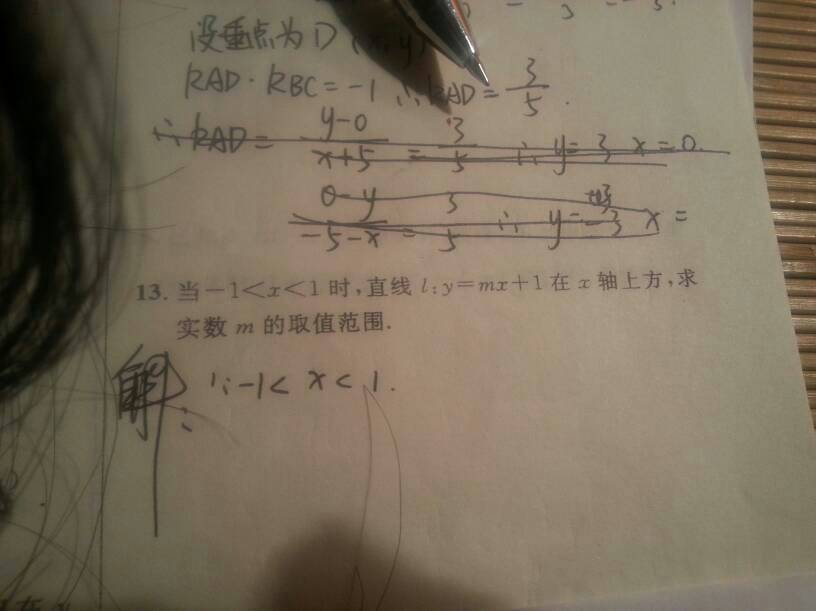 设垂点为D(x,y)
kAD·kBC=-1 ∴kAD=3/5.
∴kAD=y-0/x+5=3/5 ∴y=3 x=0.
0-y/-5-x=3/5 ∴y=-3 x=
13. 当-1<x<1时,直线l:y=mx+1在x轴上方,求
实数m的取值范围.
解:∵-1<x<1.